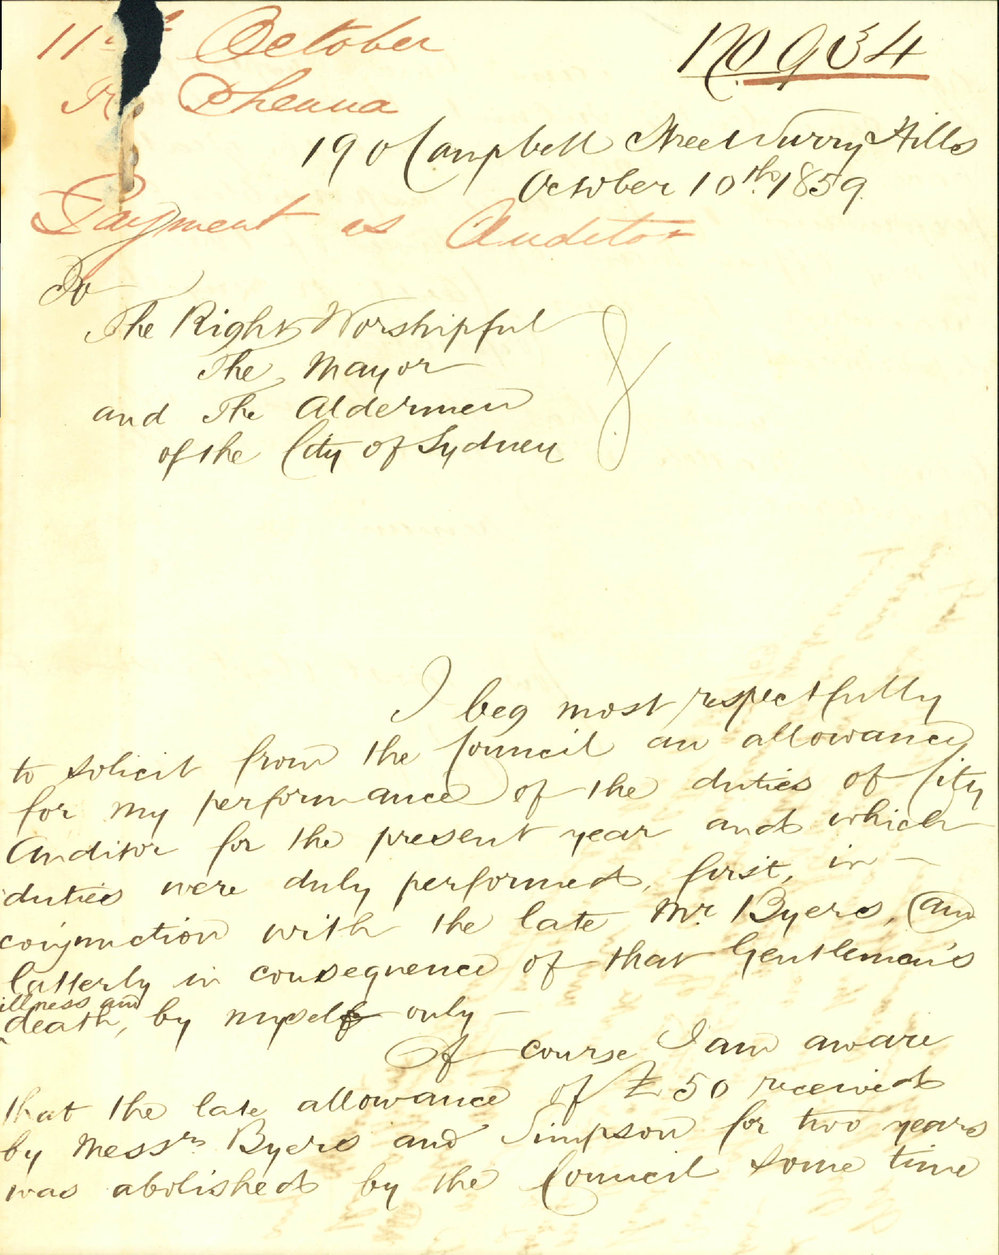 11th October
No 934
R. Pheuna
190 Campbell Street Surry Hills
October 10th 1859.
Payment as Auditor
To
The Right Worshipful
The Mayor
and The Aldermen
of the City of Sydney
I beg most respectfully
to solicit from the Council an allowance
for my performance of the duties of City
Auditor for the present year and which
duties were duly performed, first, in
conjunction with the late Mr. Byers, and
latterly in consequence of that Gentleman's
illness and
death, by myself only -
Of course I am aware
that the late allowance of £50 received
by Messrs Byers and Simpson for two years
was abolished by the Council some time